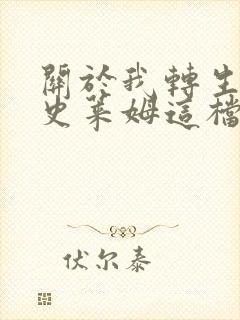 關於我轉生
史萊姆這檔
伏尔泰